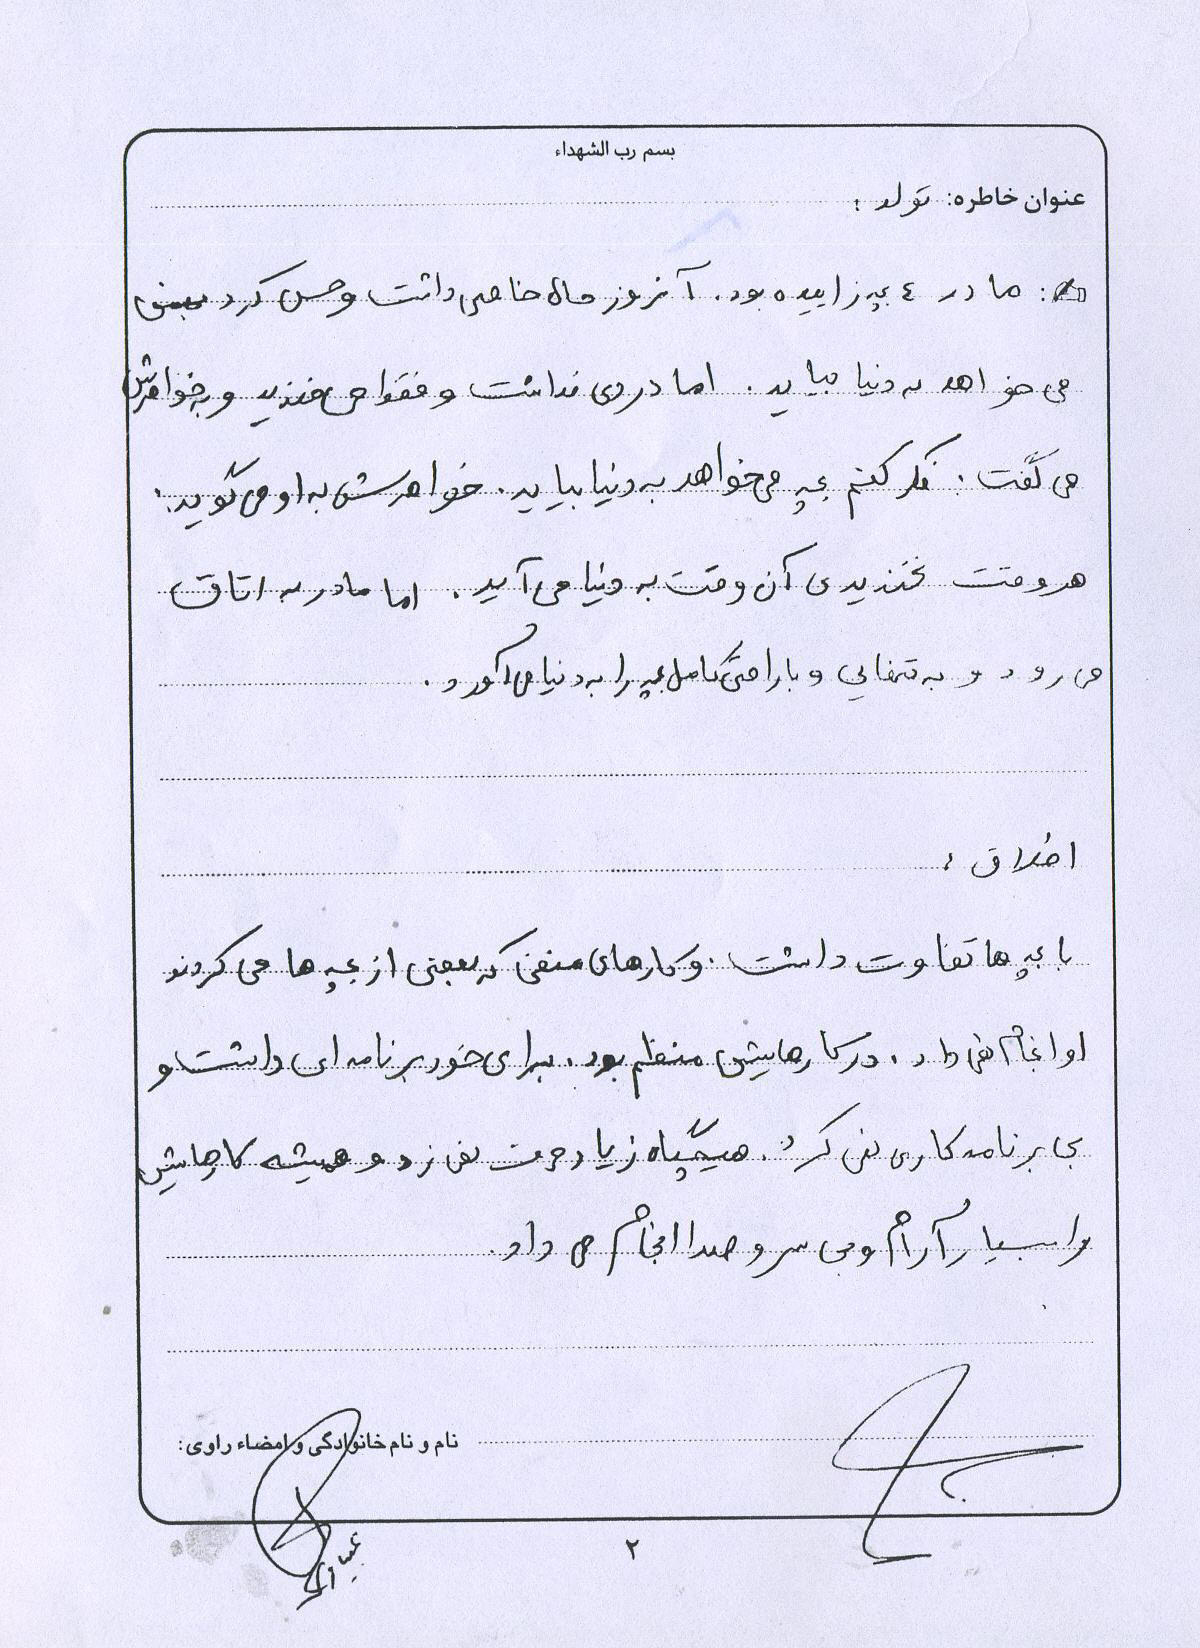 بسم رب الشهداء
عنوان خاطره: تولد :
: مادر ٤ بچه زاییده بود. آنروز حال خاصی داشت و حس کرد
می خواهد به دنیا بیاید. اما دردی نداشت و فقط می خندید و به خواهرش
می گفت: فکر کنم بچه می خواهد به دنیا بیاید. خواهرش به او می گوید:
هر وقت نخندیدی آن وقت به دنیا می آید. اما مادر به اتاق
می رود و به تنهایی و با راحتی کامل بچه را به دنیا می آورد.
اخلاق :
با بچه ها تفاوت داشت. و کارهای منفی که بعضی از بچه ها می کردند
او انجام نمی داد. در کارهایش منظم بود. برای خود برنامه ای داشت و
بی برنامه کاری نمی کرد. هیچگاه زیاد حرف نمی زد و همیشه کارهایش
را بسیار آرام و بی سر و صدا انجام می داد.
نام و نام خانوادگی و امضاء راوی:
۲